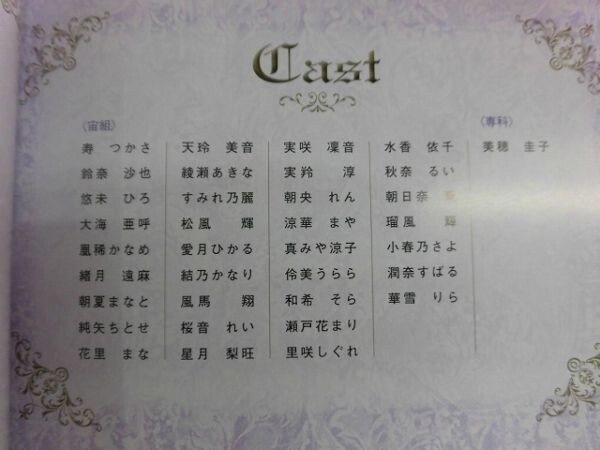 Cast
〈宙組〉
寿 つかさ
鈴奈 沙也
悠未 ひろ
大海 亜呼
凰稀かなめ
緒月 遠麻
朝夏まなと
純矢ちとせ
花里 まな
天玲 美音
綾瀬あきな
すみれ乃麗
松風 輝
愛月ひかる
結乃かなり
風馬 翔
桜音 れい
星月 梨旺
実咲 凜音
実羚 淳
朝央 れん
涼華 まや
真みや涼子
伶美うらら
和希 そら
瀬戸花まり
里咲しぐれ
水香 依千
秋奈 るい
朝日奈
瑠風 輝
小春乃さよ
潤奈すばる
華雪 りら
〈専科〉
美穂 圭子